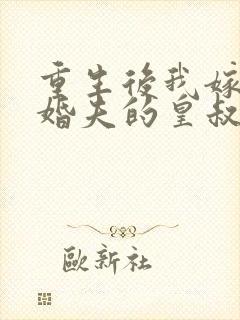 重生後我嫁
婚夫的皇叔
歐新社